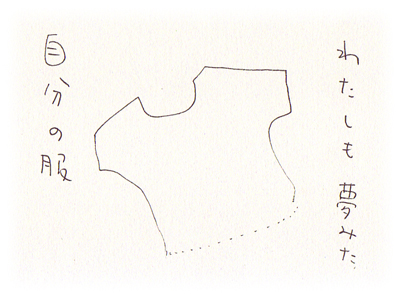 わたしも夢みた
自分の服